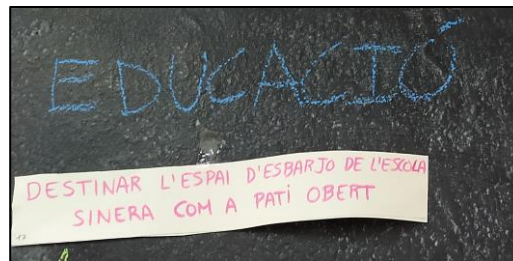 EDUCACIÓ
DESTINAR L'ESPAI D'ESBARJO DE L'ESCOLA
SINERA COM A PATI OBERT